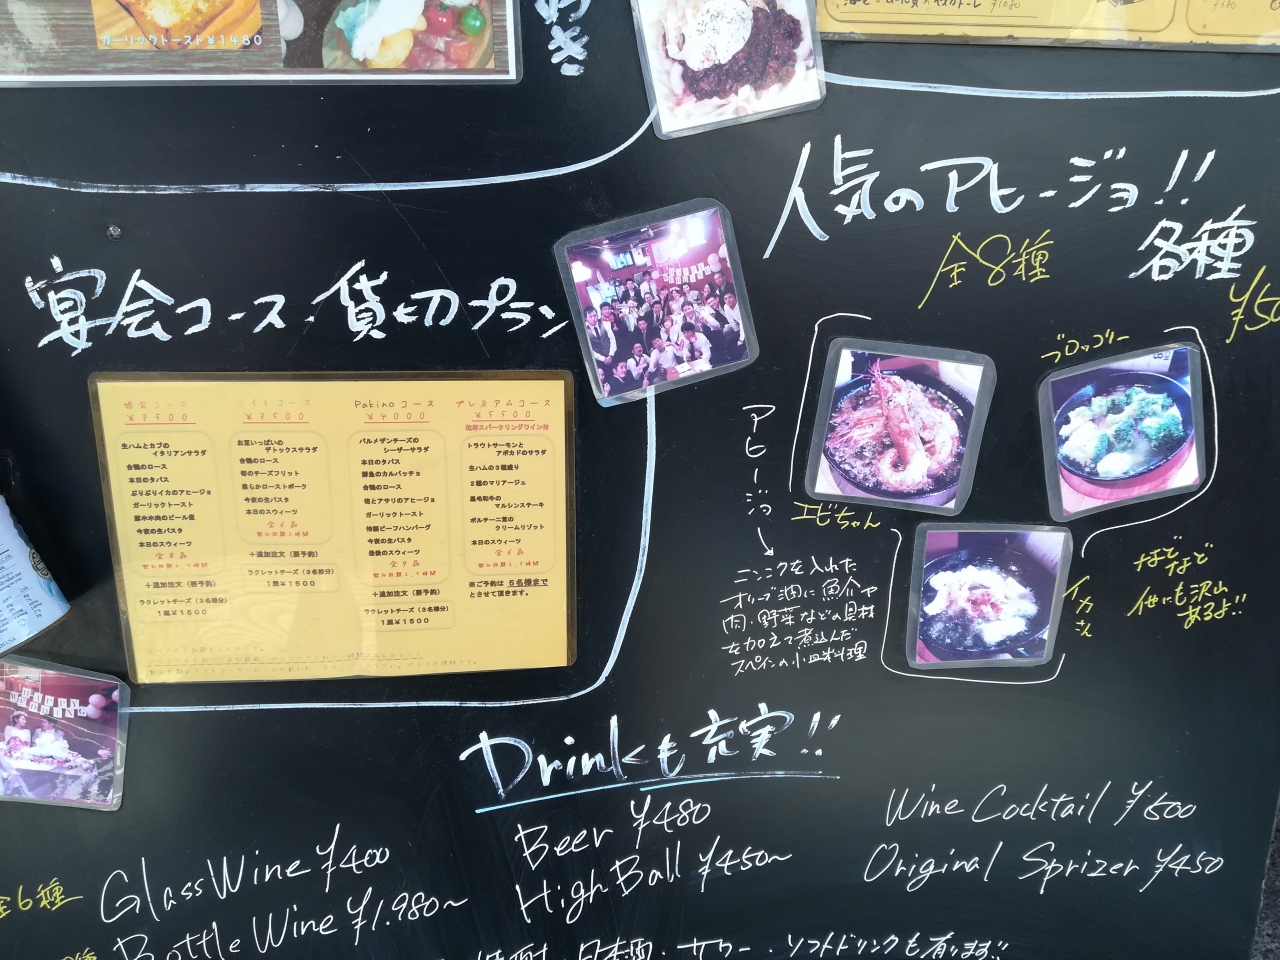 ガーリックトースト¥1480
好き
人気のアヒージョ!!
全8種
各種
宴会コース・貸切プラン
ブロッコリー
エビちゃん
イカさん
などなど
他にも沢山
あるよ!!
アヒージョ→
ニンニクを入れた
オリーブ油に魚介や
肉、野菜などの具材
を加えて煮込んだ
スペインの小皿料理
¥3500
生ハムとカブの
イタリアンサラダ
合鴨のロース
本日のタパス
ぷりぷりイカのアヒージョ
ガーリックトースト
今夜の生パスタ
本日のスウィーツ
全8品
+追加注文(要予約)
ラクレットチーズ(3名様分)
1皿¥1500
ライトコース
¥3500
お豆いっぱいの
デトックスサラダ
合鴨のロース
旬のチーズフリット
柔らかローストポーク
今夜の生パスタ
本日のスウィーツ
全6品
+追加注文(要予約)
ラクレットチーズ(3名様分)
1皿¥1500
Pakinoコース
¥4000
パルメザンチーズの
シーザーサラダ
本日のタパス
鮮魚のカルパッチョ
合鴨のロース
ガーリックトースト
特製ビーフハンバーグ
今夜の生パスタ
最後のスウィーツ
全9品
+追加注文(要予約)
ラクレットチーズ(3名様分)
1皿¥1500
プレミアムコース
¥5500
乾杯スパークリングワイン付
トラウトサーモンと
アボカドのサラダ
生ハムの3種盛り
2種のマリアージュ
黒毛和牛の
マルシンステーキ
ポルチーニ茸の
クリームリゾット
本日のスウィーツ
全6品
※ご予約は5名様まで
とさせて頂きます。
HAPPY
WEDDING
Drinkも充実!!
全6種
Glass Wine ¥400
Bottle Wine ¥1.980~
Beer ¥480
High Ball ¥450~
Wine Cocktail ¥500
Original Sprizer ¥450
焼酎・日本酒・サワー・ソフトドリンクも有ります!!